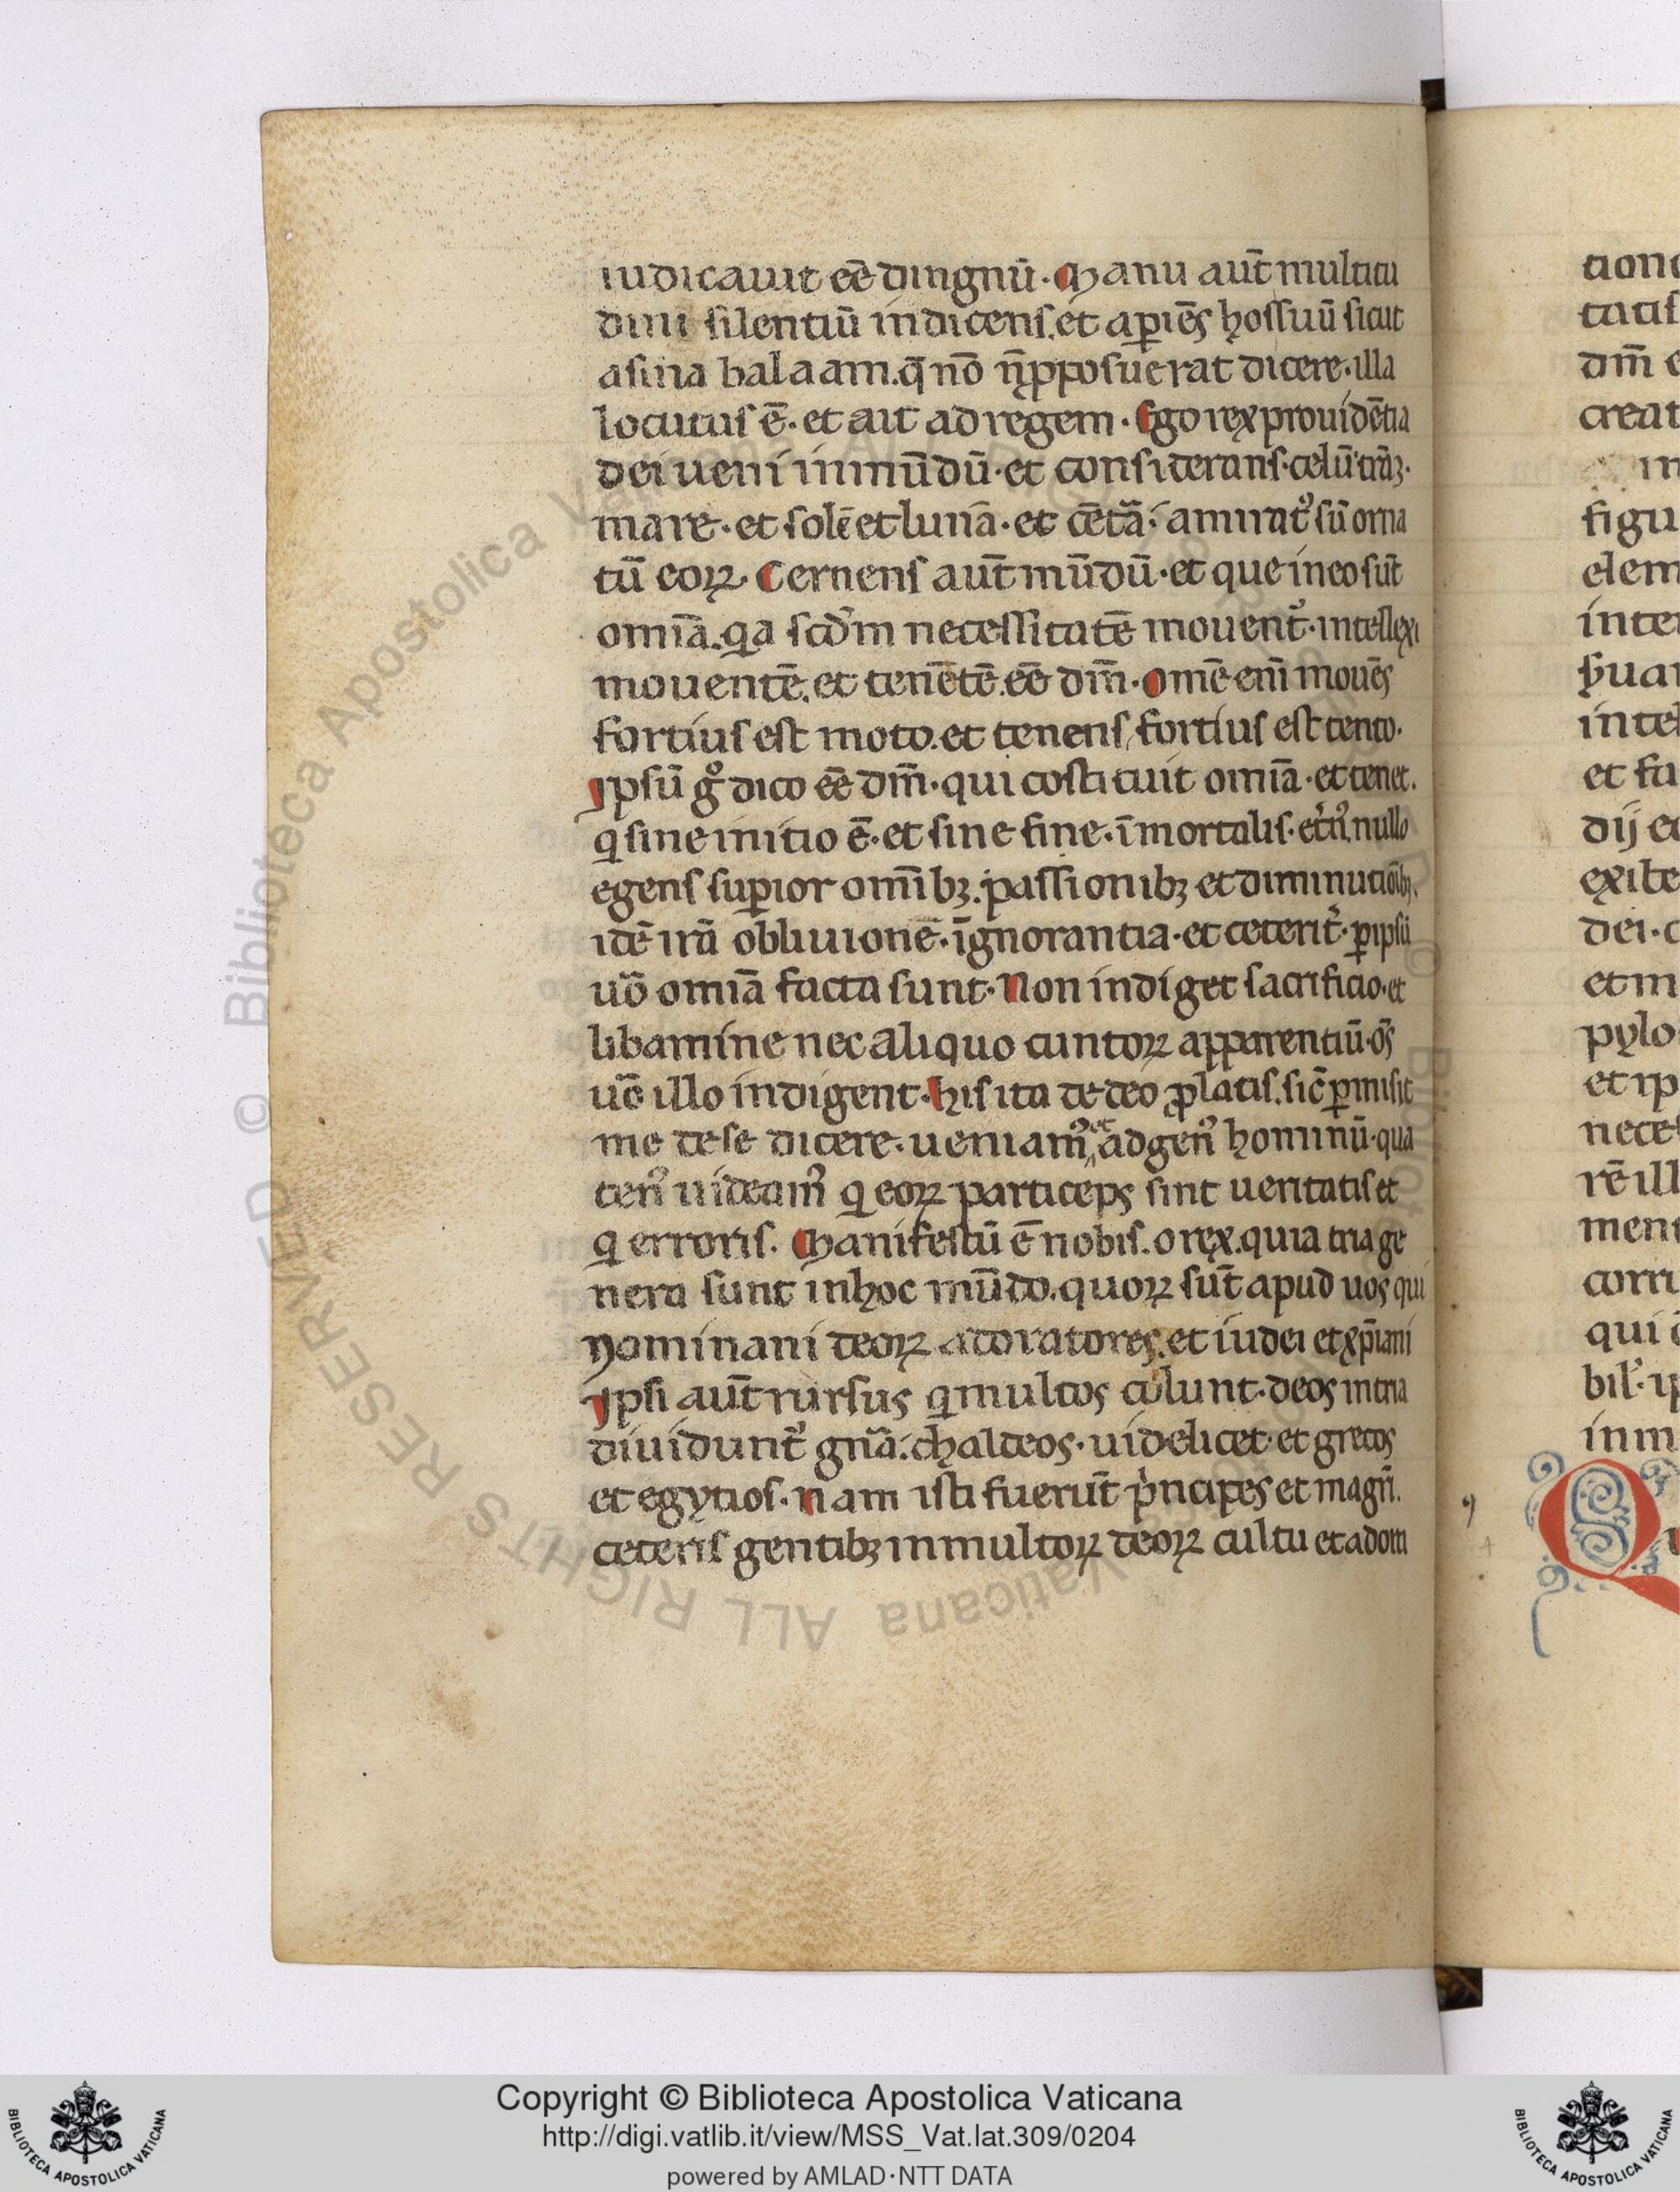 iudicauit eē dingnū· Manu aūt multitu
dini silentiū indicens. et aꝑiēs hossuū sicut
asina balaam. q̄ nō ꝓposuerat dicere· illa
locutus ē· et ait ad regem· Ego rex prouidētia
dei ueni in mūdū· et consiterans· celū·
mare· et solē et lunā· et cētā· amirat᷒ sū orna
tū eoꝝ· Cernens aūt mūdū· et que in eo sūt
omīa. qa scd̄m necessitatē mouent᷒· intellexi
mouentē. et tenētē. eē dm̄· Omē enī mouēs
fortius est moto. et tenens, fortius est tento·
Ipsū gͦ dico eē dm̄· qui costituit omīa· et tenet.
q sine initio ē· et sine fine· īmortalis· nullo
egens suꝑior omībꝫ. passionibꝫ et diminutiōibꝫ.
idē irā obliuionē· īgnorantia· et ceterit᷒· ꝑ ipsū
uō omīa facta sunt· Non indiget sacrificio· et
libamine nec aliquo cuntoꝝ apparentiū· oēs
uō illo indigent· his ita de deo ꝓlatis. sic̄ ꝑmisit
me de se dicere· ueniam᷒ et ad gen᷒ hominū· qua
ten᷒ uideam᷒ q eoꝝ particeps sint ueritatis et
q erroris· Manifestū ē nobis. o rex. quia tria ge
nera sunt in hoc mūdo. quoꝝ sūt apud uos qui
nominani deoꝝ adoratores. et iudei et xp̄iani
Ipsi aūt rursus q multos colunt· deos in tria
diuidunt᷒ gnā· chaldeos· uidelicet· et grecos
et egytios· Nam isti fuerūt pͥncipes et magrī.
ceteris gentibꝫ in multoꝝ deoꝝ cultu et adora
tione
dm̄
creat
in
figu
elem
inte
intel
et fa
dij
exibe
dei·
et m
pylo
et ip
nece
rē ill
ment
corru
qui
in m
Q
© Biblioteca Apostolica Vaticana ALL RIGHTS RESERVED
Copyright © Biblioteca Apostolica Vaticana
http://digi.vatlib.it/view/MSS_Vat.lat.309/0204
powered by AMLAD·NTT DATA
BIBLIOTECA APOSTOLICA VATICANA
BIBLIOTECA APOSTOLICA VATICANA